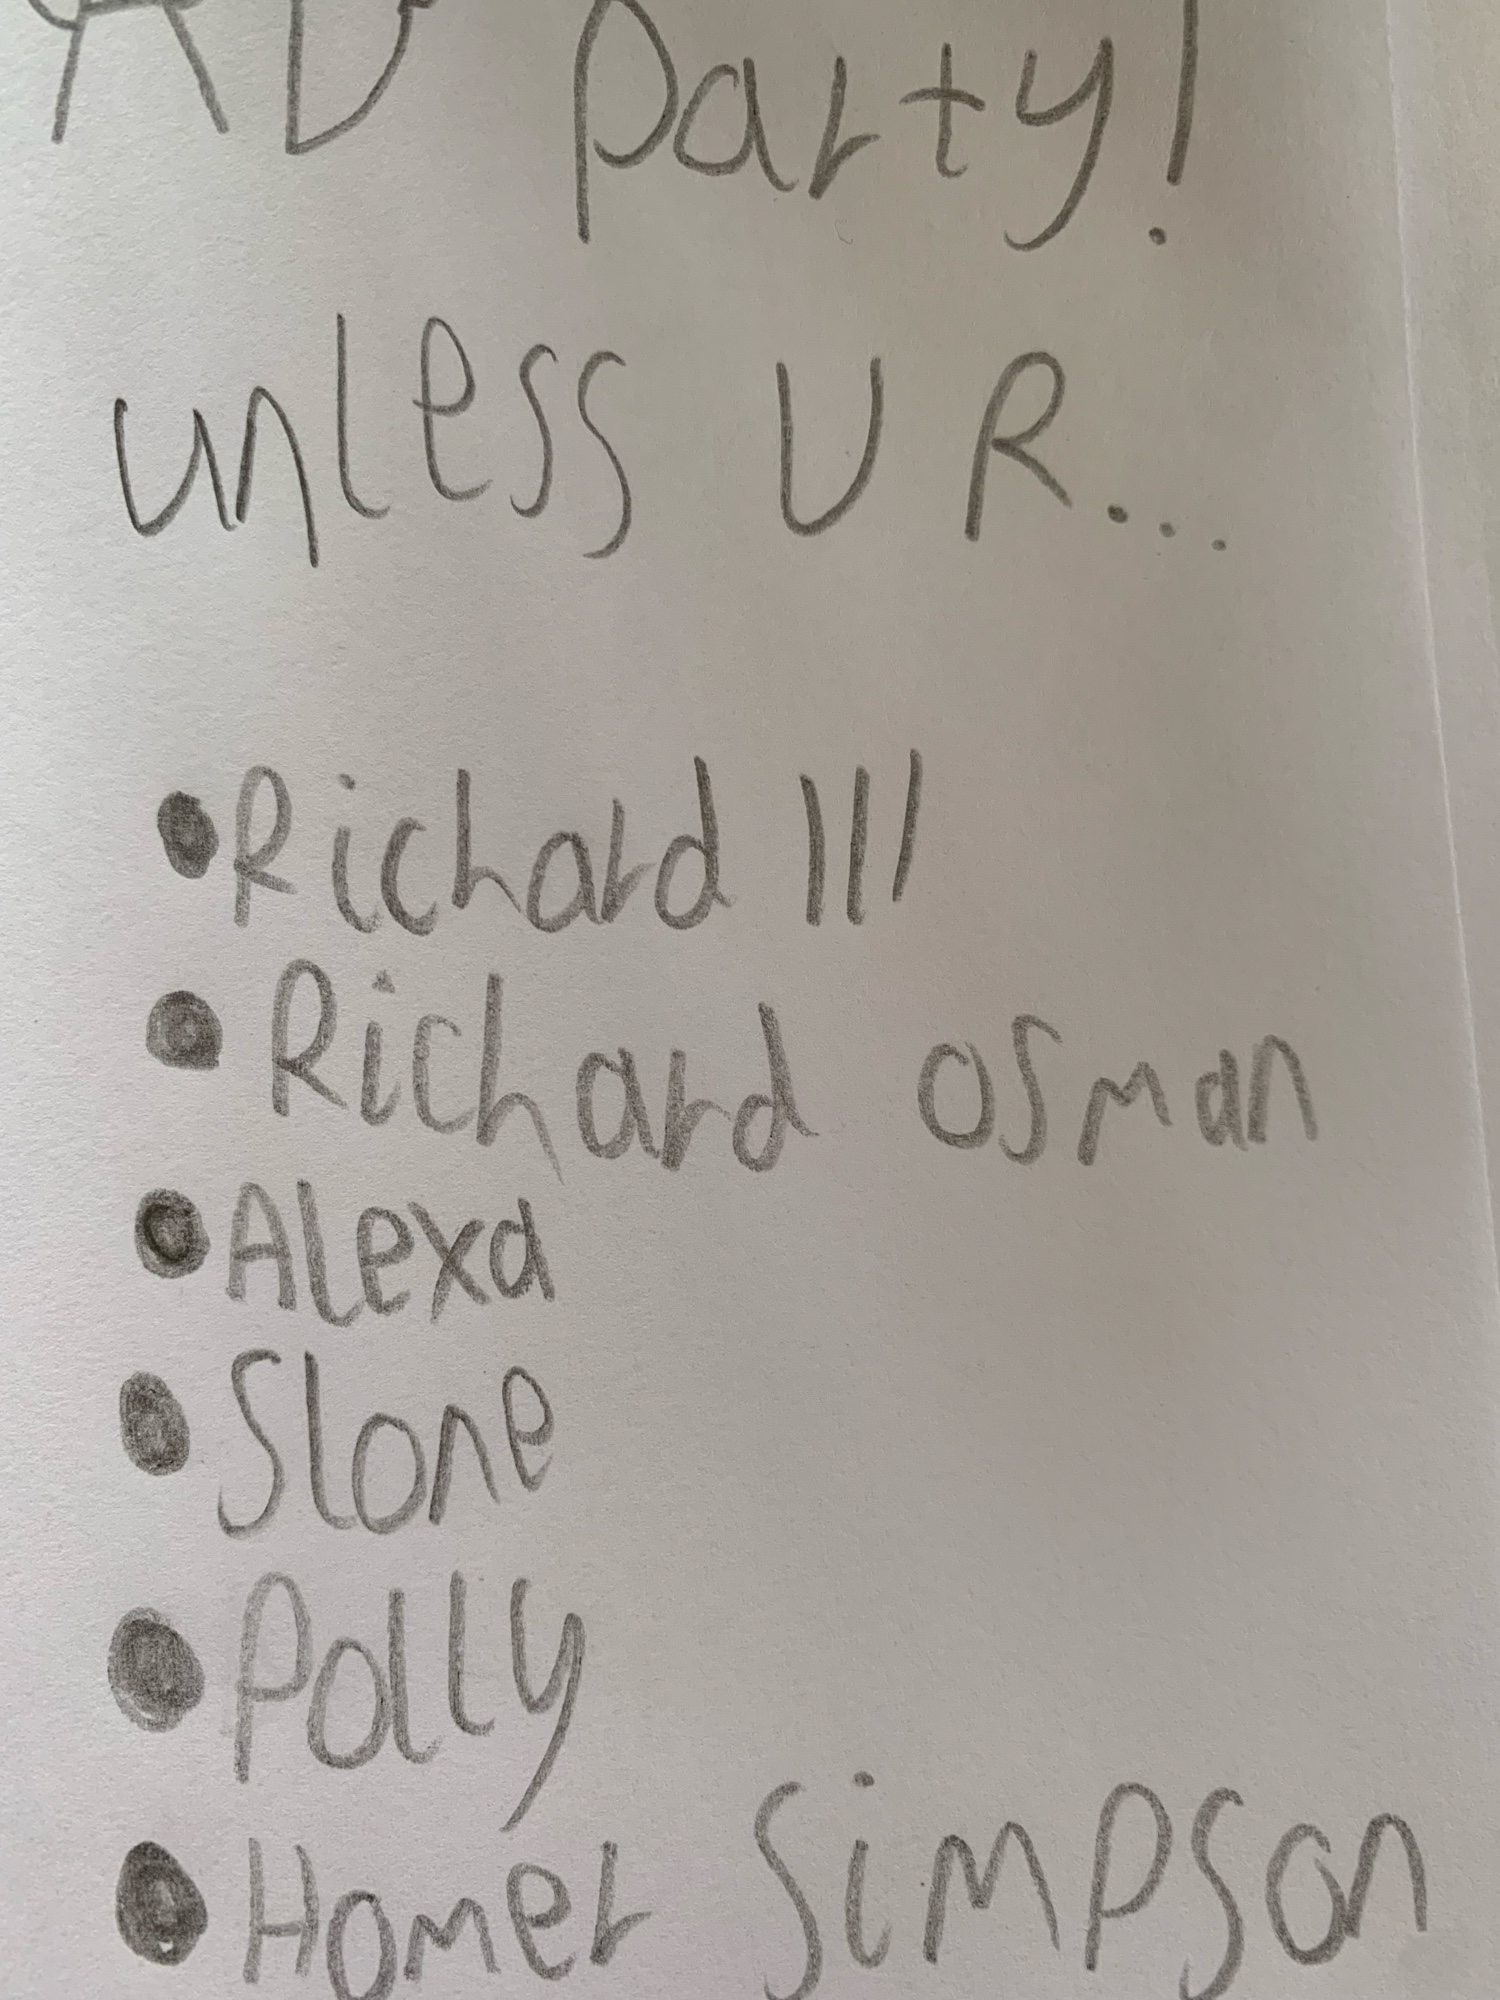 Party!
unless U R...
• Richard III
• Richard osman
• Alexa
• Slone
• Polly
• Homer Simpson